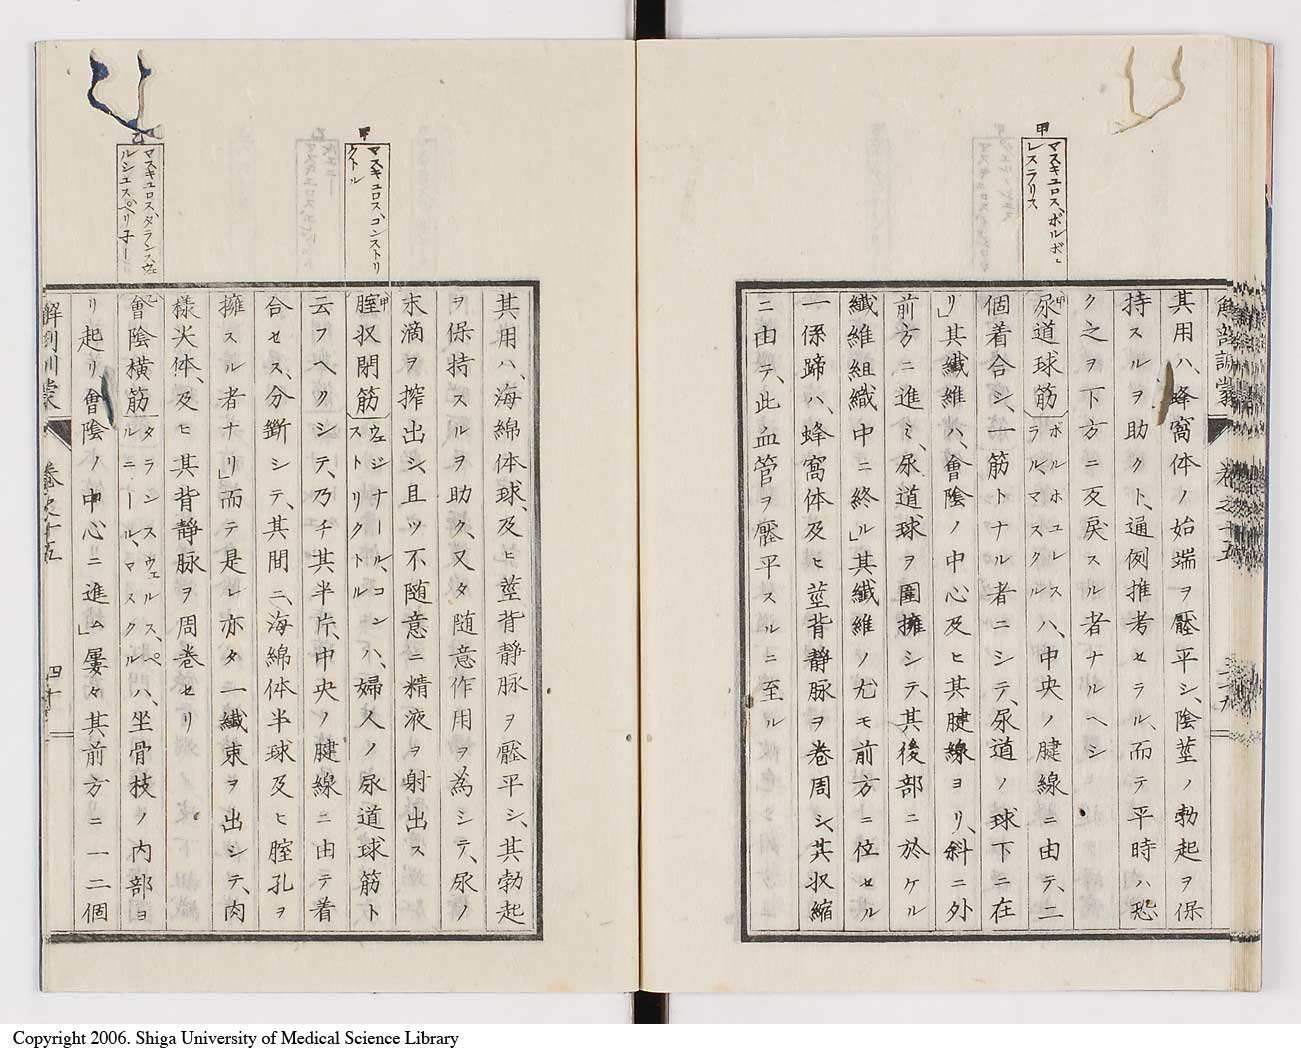 甲
マスキュロス、ボルボ、
レスラリス
解剖訓蒙 巻之十五
其用ハ、蜂窩体ノ始端ヲ壓平シ、陰莖ノ勃起ヲ保
持スルヲ助クト、通例推考セラル、而テ平時ハ恐
ク之ヲ下方ニ反戻スル者ナルヘシ
甲尿道球筋ボルボユレスラルマスクルハ、中央ノ腱線ニ由テ、二
個着合シ、一筋トナル者ニシテ、尿道ノ球下ニ在
リ」其纎維ハ、會陰ノ中心及ヒ其腱線ヨリ、斜ニ外
前方ニ進ミ、尿道球ヲ圍擁シテ、其後部ニ於ケル
纎維組織中ニ終ル」其纎維ノ尤モ前方ニ位セル
一係蹄ハ、蜂窩体及ヒ莖背靜脉ヲ卷周シ、其収縮
ニ由テ、此血管ヲ壓平スルニ至ル
甲
マスキュロス、コンストリ
クトル
乙
マスキュロス、タランスウェ
ルシユス、ペリ子ー
其用ハ、海綿体球、及ヒ莖背靜脉ヲ壓平シ、其勃起
ヲ保持スルヲ助ク、又タ随意作用ヲ為シテ、尿ノ
末滴ヲ搾出シ、且ツ不随意ニ精液ヲ射出ス
甲腟収閉筋ウェジナール、コンストリクトルハ、婦人ノ尿道球筋ト
云フヘクシテ、乃チ其半片、中央ノ腱線ニ由テ着
合セス、分斷シテ、其間ニ、海綿体半球及ヒ腟孔ヲ
擁スル者ナリ」而テ是レ亦タ一纎束ヲ出シテ、肉
様尖体、及ヒ其背靜脉ヲ周卷セリ
乙會陰橫筋タランスウェルス、ペルニール、マスクルハ、坐骨枝ノ内部ヨ
リ起リ、會陰ノ中心ニ進ム」屢々其前方ニ一二個
解剖訓蒙 巻之十五 四十
Copyright 2006. Shiga University of Medical Science Library